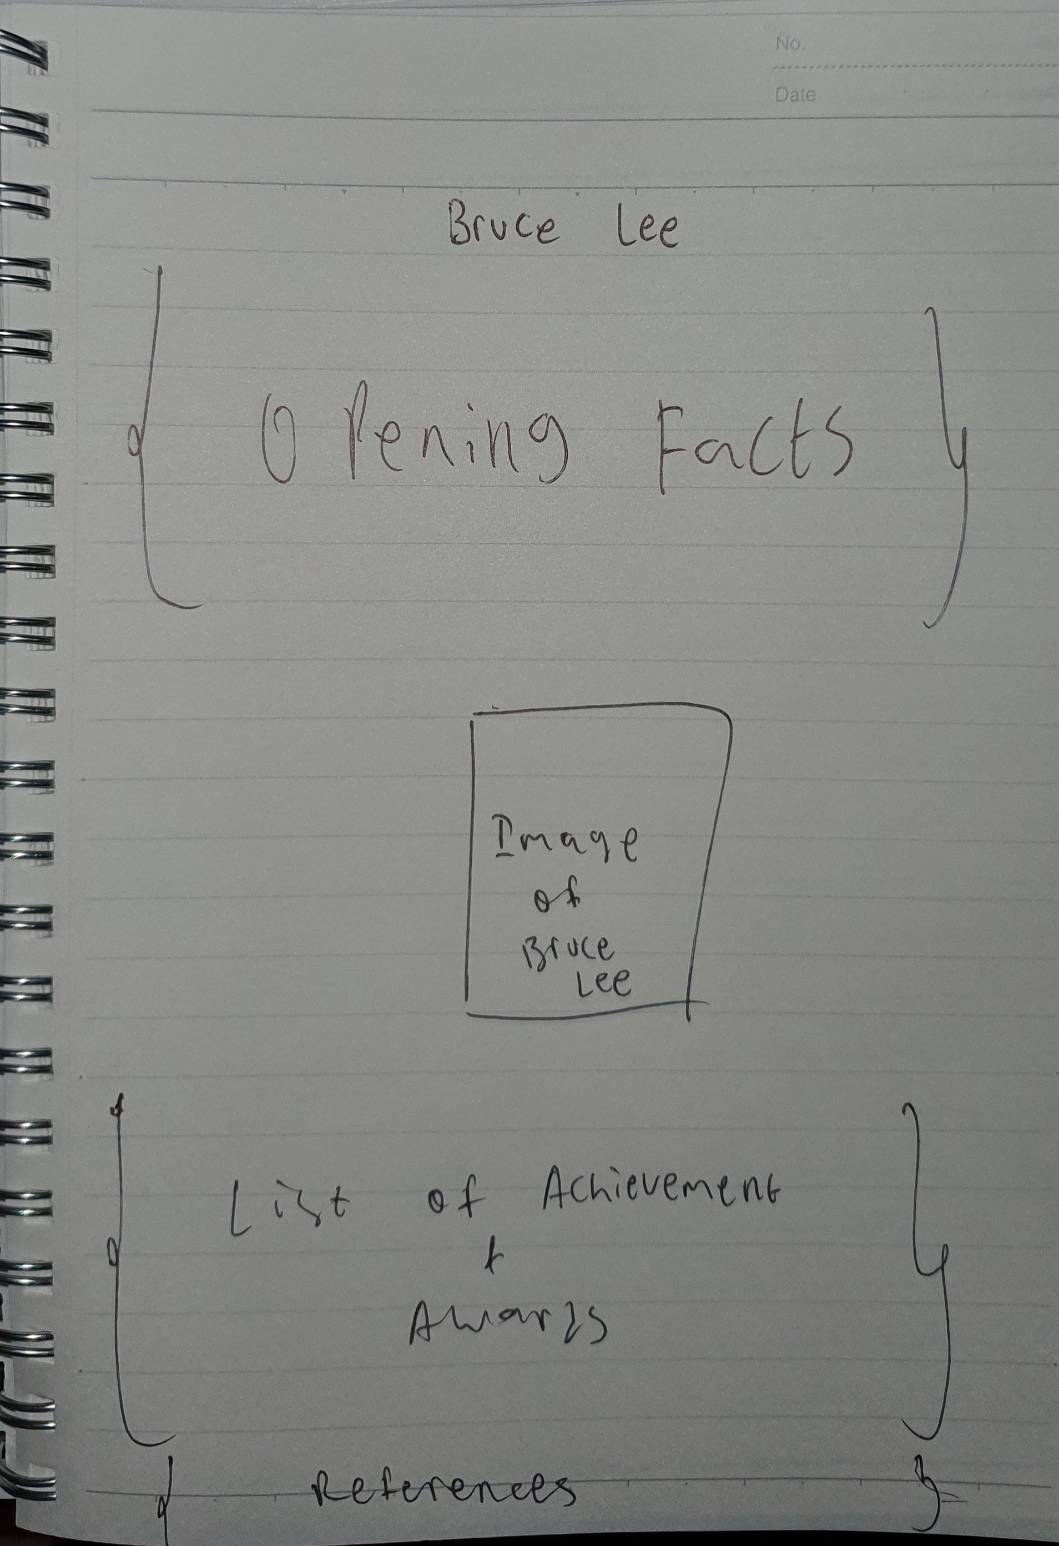 No.
Date
Bruce Lee
Opening Facts
Image
of
Bruce
Lee
List of Achievement
+
Awards
References